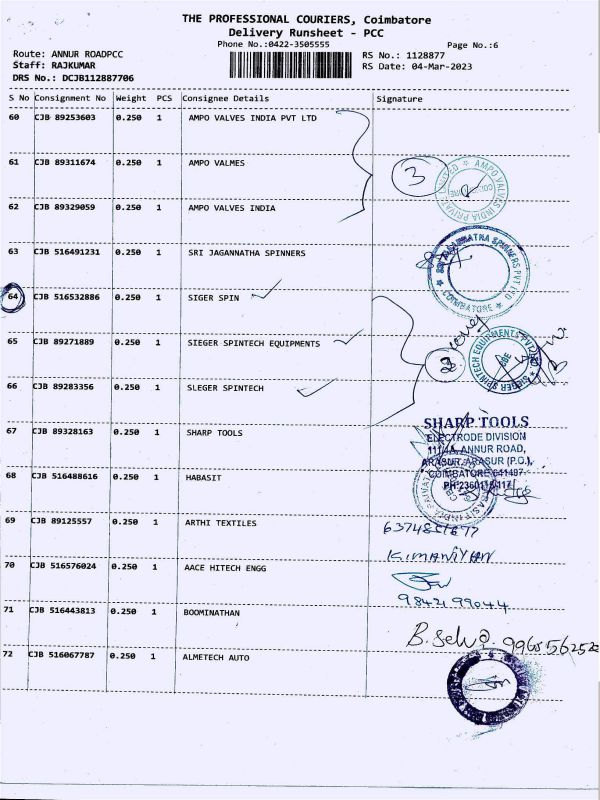 THE PROFESSIONAL COURIERS, Coimbatore
Delivery Runsheet - PCC
Phone No.:0422-3505555
Page No.:6
Route: ANNUR ROADPCC
Staff: RAJKUMAR
DRS No.: DCJB112887706
RS No.: 1128877
RS Date: 04-Mar-2023
S No Consignment No Weight PCS Consignee Details Signature
60 CJB 89253603 0.250 1 AMPO VALVES INDIA PVT LTD
61 CJB 89311674 0.250 1 AMPO VALMES
3
AMPO VALVES INDIA PRIVATE LIMITED
62 CJB 89329059 0.250 1 AMPO VALVES INDIA
63 CJB 516491231 0.250 1 SRI JAGANNATHA SPINNERS
SRI JAGANNATHA SPINNERS PVT LTD
COIMBATORE
64 CJB 516532886 0.250 1 SIGER SPIN
65 CJB 89271889 0.250 1 SIEGER SPINTECH EQUIPMENTS
SIEGER SPINTECH EQUIPMENTS PVT LTD
66 CJB 89283356 0.250 1 SLEGER SPINTECH
67 CJB 89328163 0.250 1 SHARP TOOLS
SHARP TOOLS
ELECTRODE DIVISION
111/4A, ANNUR ROAD,
ARASUR, ARASUR (P.O.),
COIMBATORE 641407
68 CJB 516488616 0.250 1 HABASIT
69 CJB 89125557 0.250 1 ARTHI TEXTILES
70 CJB 516576024 0.250 1 AACE HITECH ENGG
K.MANIYAN
9842199044
71 CJB 516443813 0.250 1 BOOMINATHAN
72 CJB 516067787 0.250 1 ALMETECH AUTO